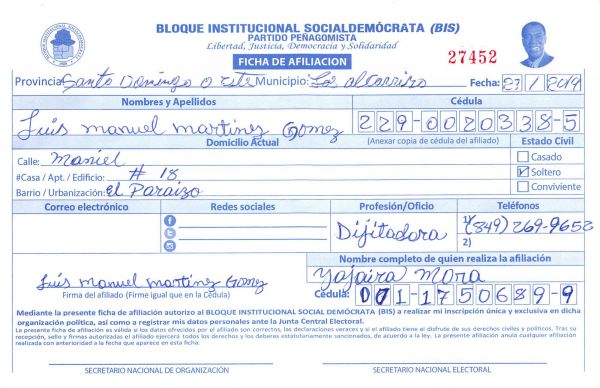 BLOQUE INSTITUCIONAL SOCIALDEMÓCRATA (BIS)
PARTIDO PEÑAGOMISTA
Libertad, Justicia, Democracia y Solidaridad
FICHA DE AFILIACION
27452
Provincia: Santo Domingo O este Municipio: Los alcarrizo Fecha: 23/1/2019
Nombres y Apellidos Cédula
Luis manuel martinez Gomez 229-0020338-5
Domicilio Actual (Anexar copia de cédula del afiliado) Estado Civil
Calle: Maniel Casado
#Casa / Apt. / Edificio: # 18 Soltero
Barrio / Urbanización: El Paraizo Conviviente
Correo electrónico Redes sociales Profesión/Oficio Teléfonos
Dijitadora 1) (849) 269-9652
2)
Nombre completo de quien realiza la afiliación
Luis manuel martinez Gomez Yajaira Mora
Firma del afiliado (Firme igual que en la Cédula) Cédula: 001-1750689-9
Mediante la presente ficha de afiliación autorizo al BLOQUE INSTITUCIONAL SOCIAL DEMÓCRATA (BIS) a realizar mi inscripción única y exclusiva en dicha
organización política, así como a registrar mis datos personales ante la Junta Central Electoral.
La presente ficha de afiliación es válida si los datos ofrecidos por el afiliado son correctos, las declaraciones veraces y si el afiliado tiene el disfrute de sus derechos civiles y políticos. Tras su
recepción, sello y firmas autorizadas el afiliado ejercerá todos los derechos y los deberes estatutariamente sancionados, de acuerdo a la ley. La presente afiliación anula cualquier afiliación
realizada con anterioridad a la fecha que aparece en esta ficha.
SECRETARIO NACIONAL DE ORGANIZACIÓN SECRETARIO NACIONAL ELECTORAL